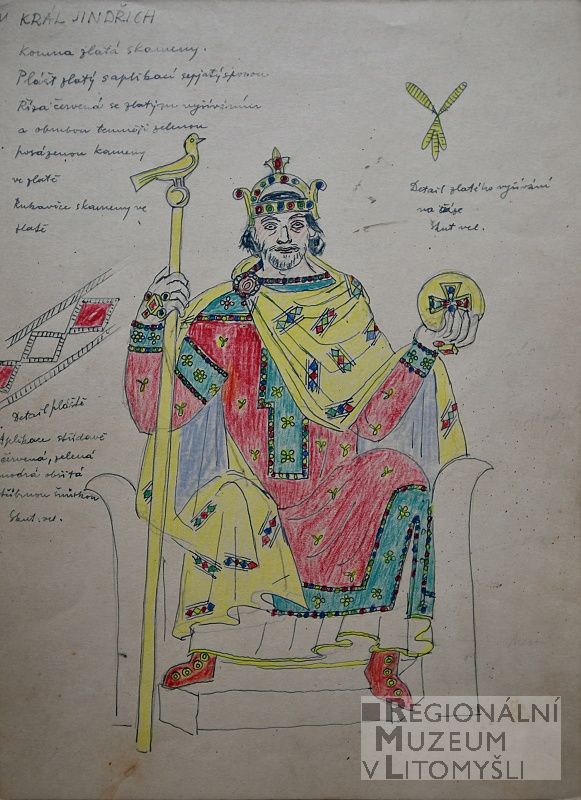 KRÁL JINDŘICH
Koruna zlatá s kameny.
Plášť zlatý s aplikací sepjatý sponou
Říza červená se zlatým vyšíváním
a obrubou temněji zelenou
posázenou kameny
ve zlatě
Rukavice s kameny ve
zlatě
Detail zlatého vyšívání
na říze
Skut. vel.
Detail pláště
Aplikace střídavě
červená, zelená
modrá obšitá
stříbrnou šňůrkou
Skut. vel.
REGIONÁLNÍ
MUZEUM
V LITOMYŠLI